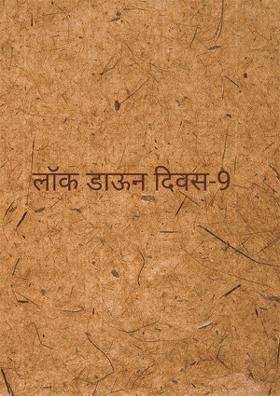 लॉक डाऊन दिवस-9